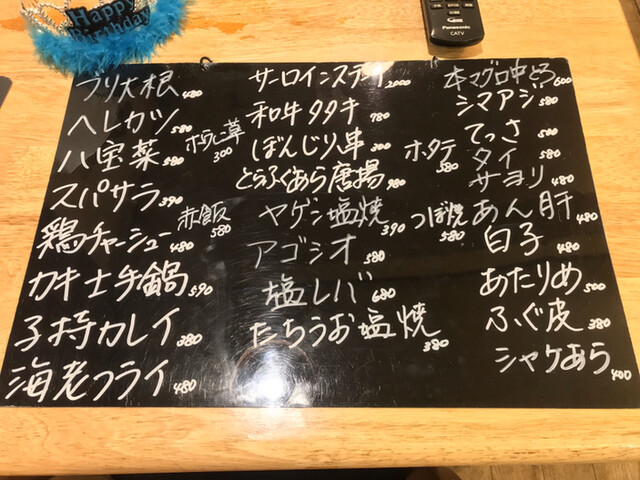 Happy Birthday
Panasonic
CATV
ブリ大根 480
ヘレカツ 580
ホウレン草 300
八宝菜 580
スパサラ 390
赤飯 580
鶏チャーシュー 480
カキ土手鍋 590
子持カレイ 380
海老フライ 480
サーロインステーキ 2000
和牛タタキ 780
ぼんじり串 300
とらふぐあら唐揚 980
ヤゲン塩焼 390
アゴシオ 580
塩レバ 680
たちうお塩焼 380
ホタテ 580
つぼ焼 580
本マグロ中とろ 600
シマアジ 580
てっさ 500
タイ 580
サヨリ 480
あん肝 480
白子 480
あたりめ 500
ふぐ皮 380
シャケあら 400